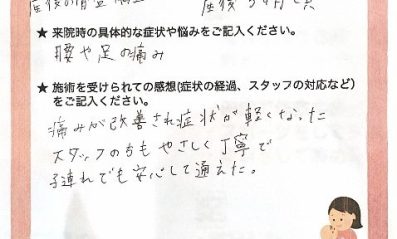 産後の骨盤
産後
★ 来院時の具体的な症状や悩みをご記入ください。
腰や足の痛み
★ 施術を受けられての感想(症状の経過、スタッフの対応など)
をご記入ください。
痛みが改善され症状が軽くなった
スタッフの方もやさしく丁寧で
子連れでも安心して通えた。